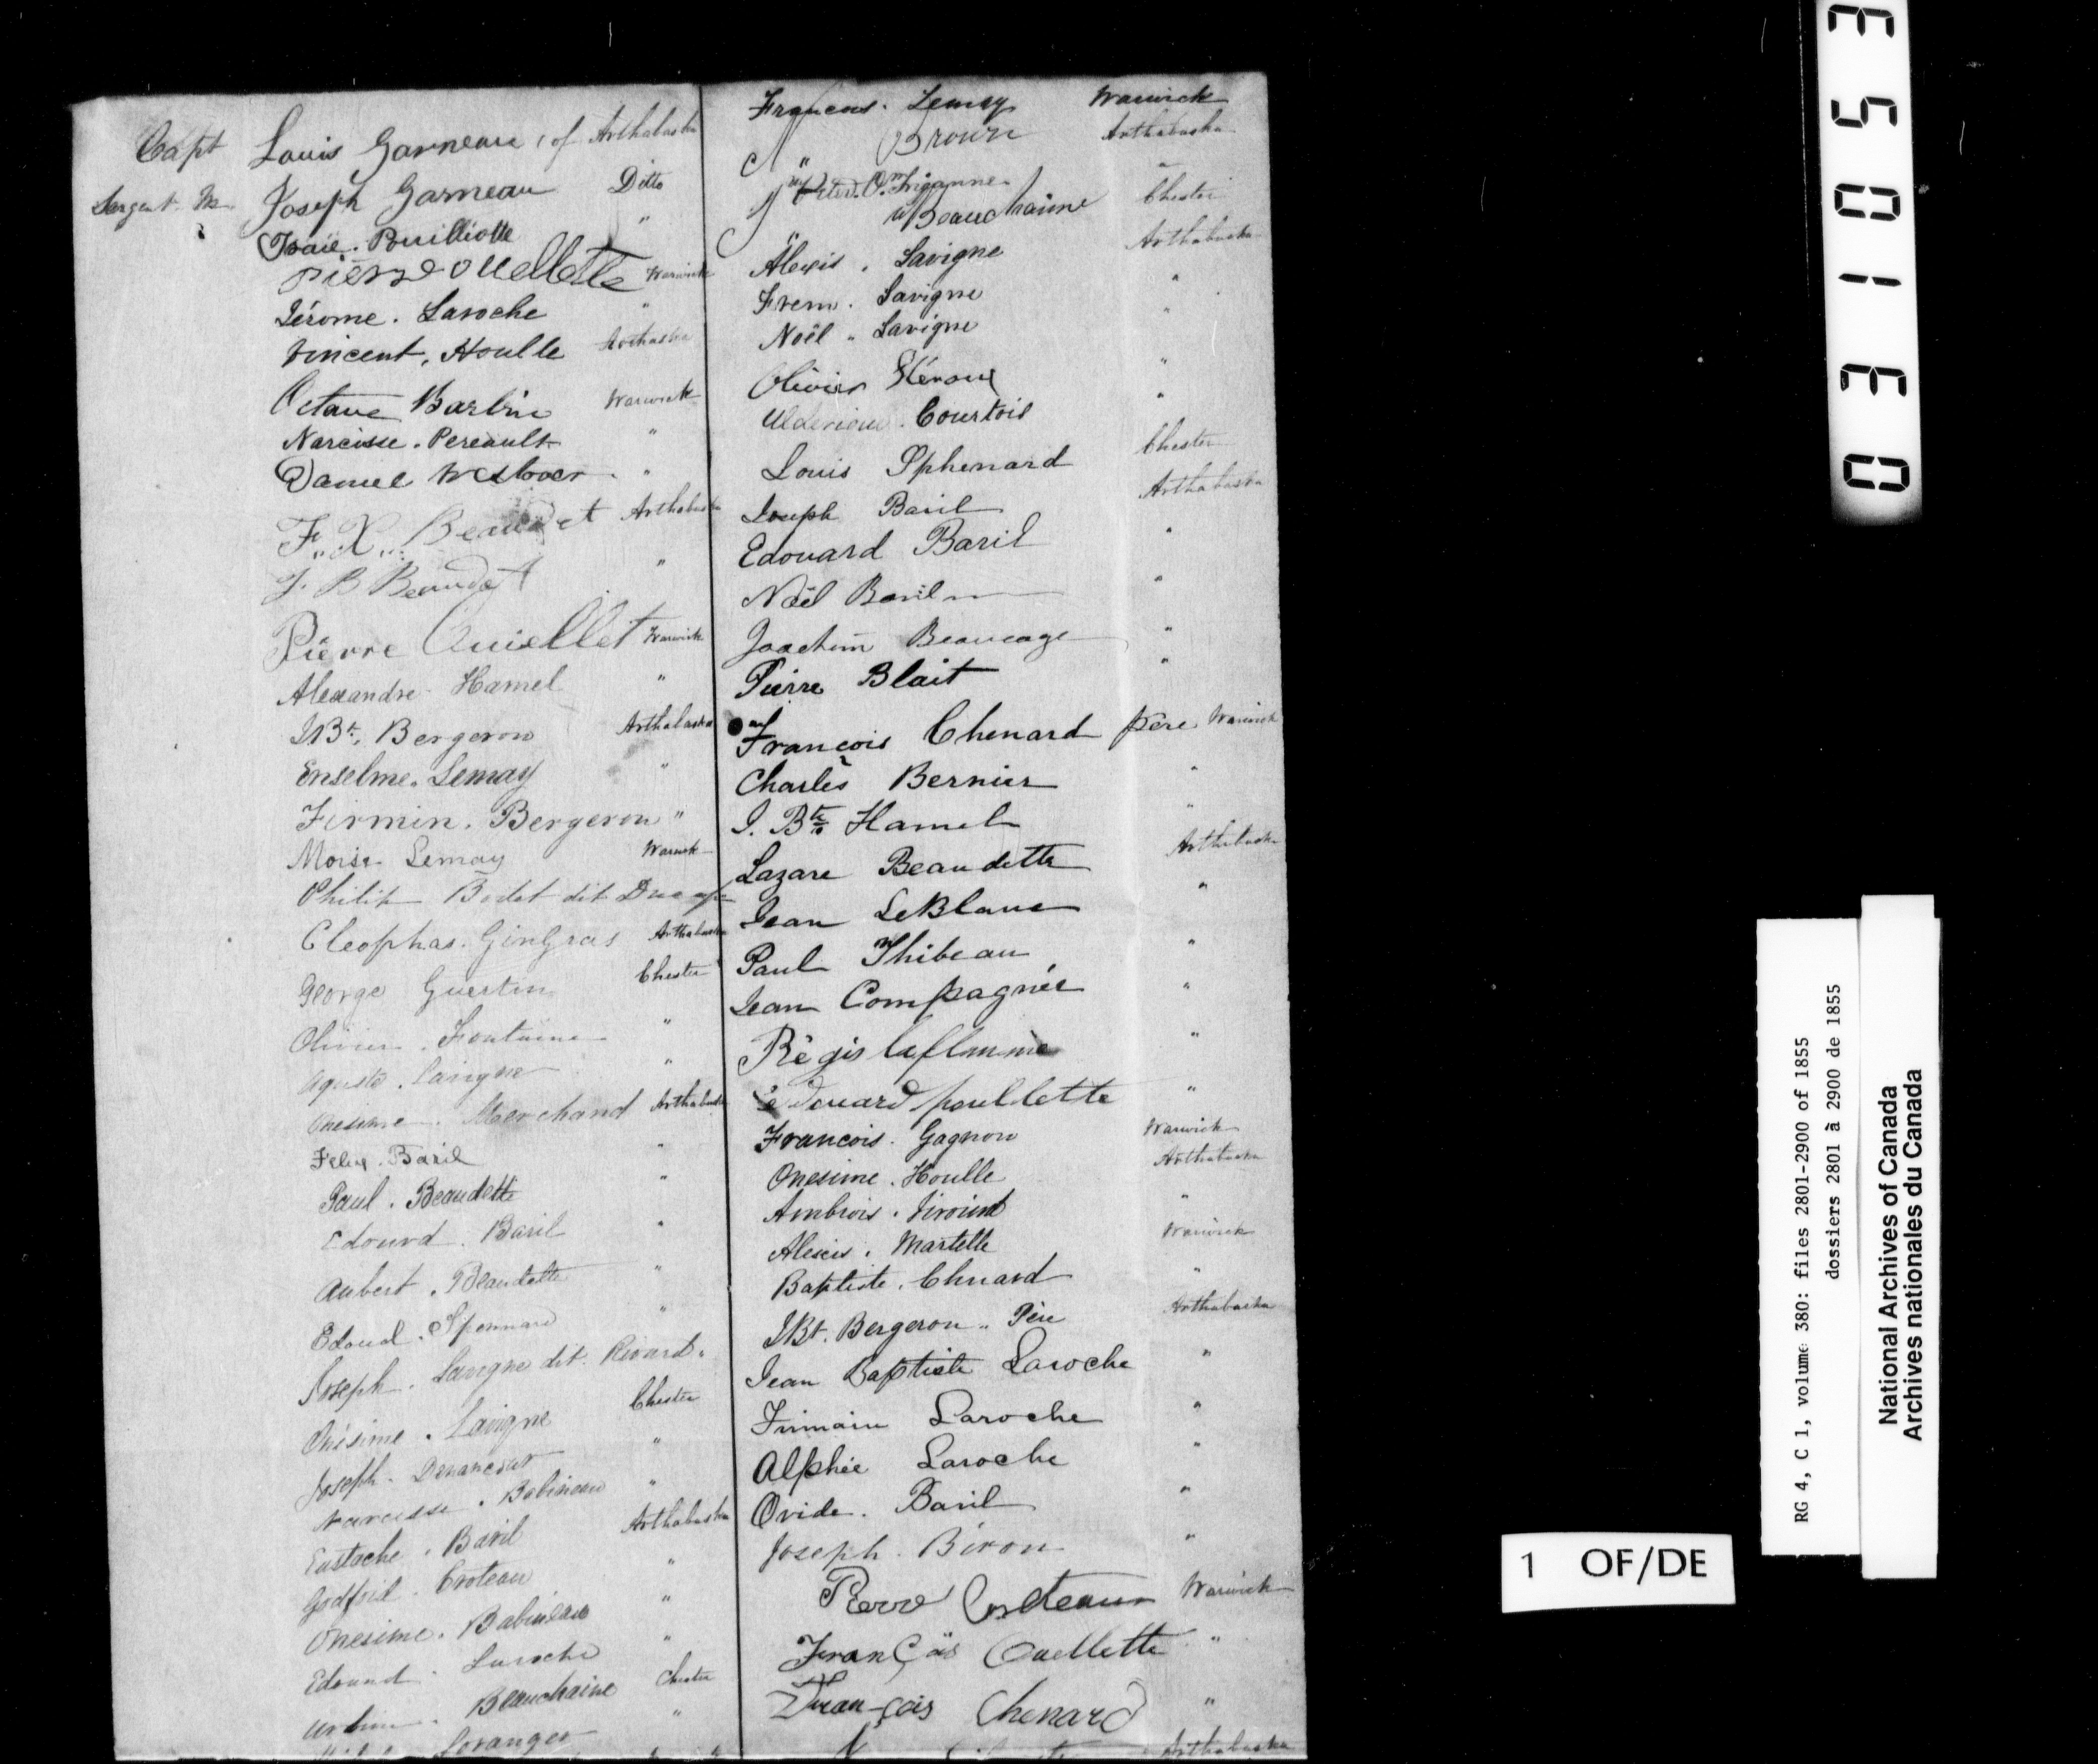 Capt Louis Garneau, of Arthabaska
Sargent M Joseph Garneau Ditto
Isaïe. Pouilliotte "
Pierre Ouellette Warwick
Jérome. Laroche "
Vincent. Houlle Arthaska
Octave Barbin Warwick
Narcisse. Pereault "
Daniel "
F. X. Beaudet Arthabaska
J. B Beaudet "
Pierre Ouiellet Warwick
Alexandre Hamel "
JBte. Bergeron Arthabaska
Enselme. Lemay "
Firmin. Bergeron "
Moise Lemay Warwick
Philip Bodet dit
Cleophas. GinGras Arthabaska
George Guertin Chester
Olivier. Fontaine "
Aguste. Lavigne "
Onesime. Merchand Arthabaska
Felix. Baril "
Paul. Beaudette "
Edourd. Baril "
Aubert. Beaudette "
Edoud. "
Joseph. Lavigne dit Rivard "
Onésime. Lavigne Chester
Joseph. "
Narcisse. Babineau "
Eustache. Baril Arthabaska
Godfoid. Croteau "
Onesime. Babineau "
Edouard. Laroche "
Beauchaine Chester
Loranger "
Francois. Lemay Warwick
Brown Arthabaska
"
Beauchaine Chester
Alexis. Lavigne Arthabaska
Frem. Lavigne "
Noël. Lavigne "
Olivier Héroux "
Courtois "
Louis Sphenard Chester
Joseph Baril Arthabaska
Edouard Baril "
Noël Baril "
Joachim Beaucage "
Pierre Blait "
François Chenard père Warwick
Charles Bernier "
J. Bte Hamel "
Lazare Beaudette Arthabaska
Jean LeBlanc "
Paul Thibeau "
Jean Compagnée "
Régis laflamme "
édouard poullette "
Francois. Gagnon Warwick
Onesime. Houlle Arthabaska
Ambrois. "
Alexis. Martelle Warwick
Baptiste. Chnard "
JBt. Bergeron Père Arthabaska
Jean Baptiste Laroche "
Firmain Laroche "
Alphée Laroche "
Ovide. Baril "
Joseph. Biron "
Pierre Warwick
François Ouellette "
François Chenard "
Arthabaska
0 3 1 0 5 3
RG 4, C 1, volume 380: files 2801-2900 of 1855
dossiers 2801 à 2900 de 1855
National Archives of Canada
Archives nationales du Canada
1 OF/DE